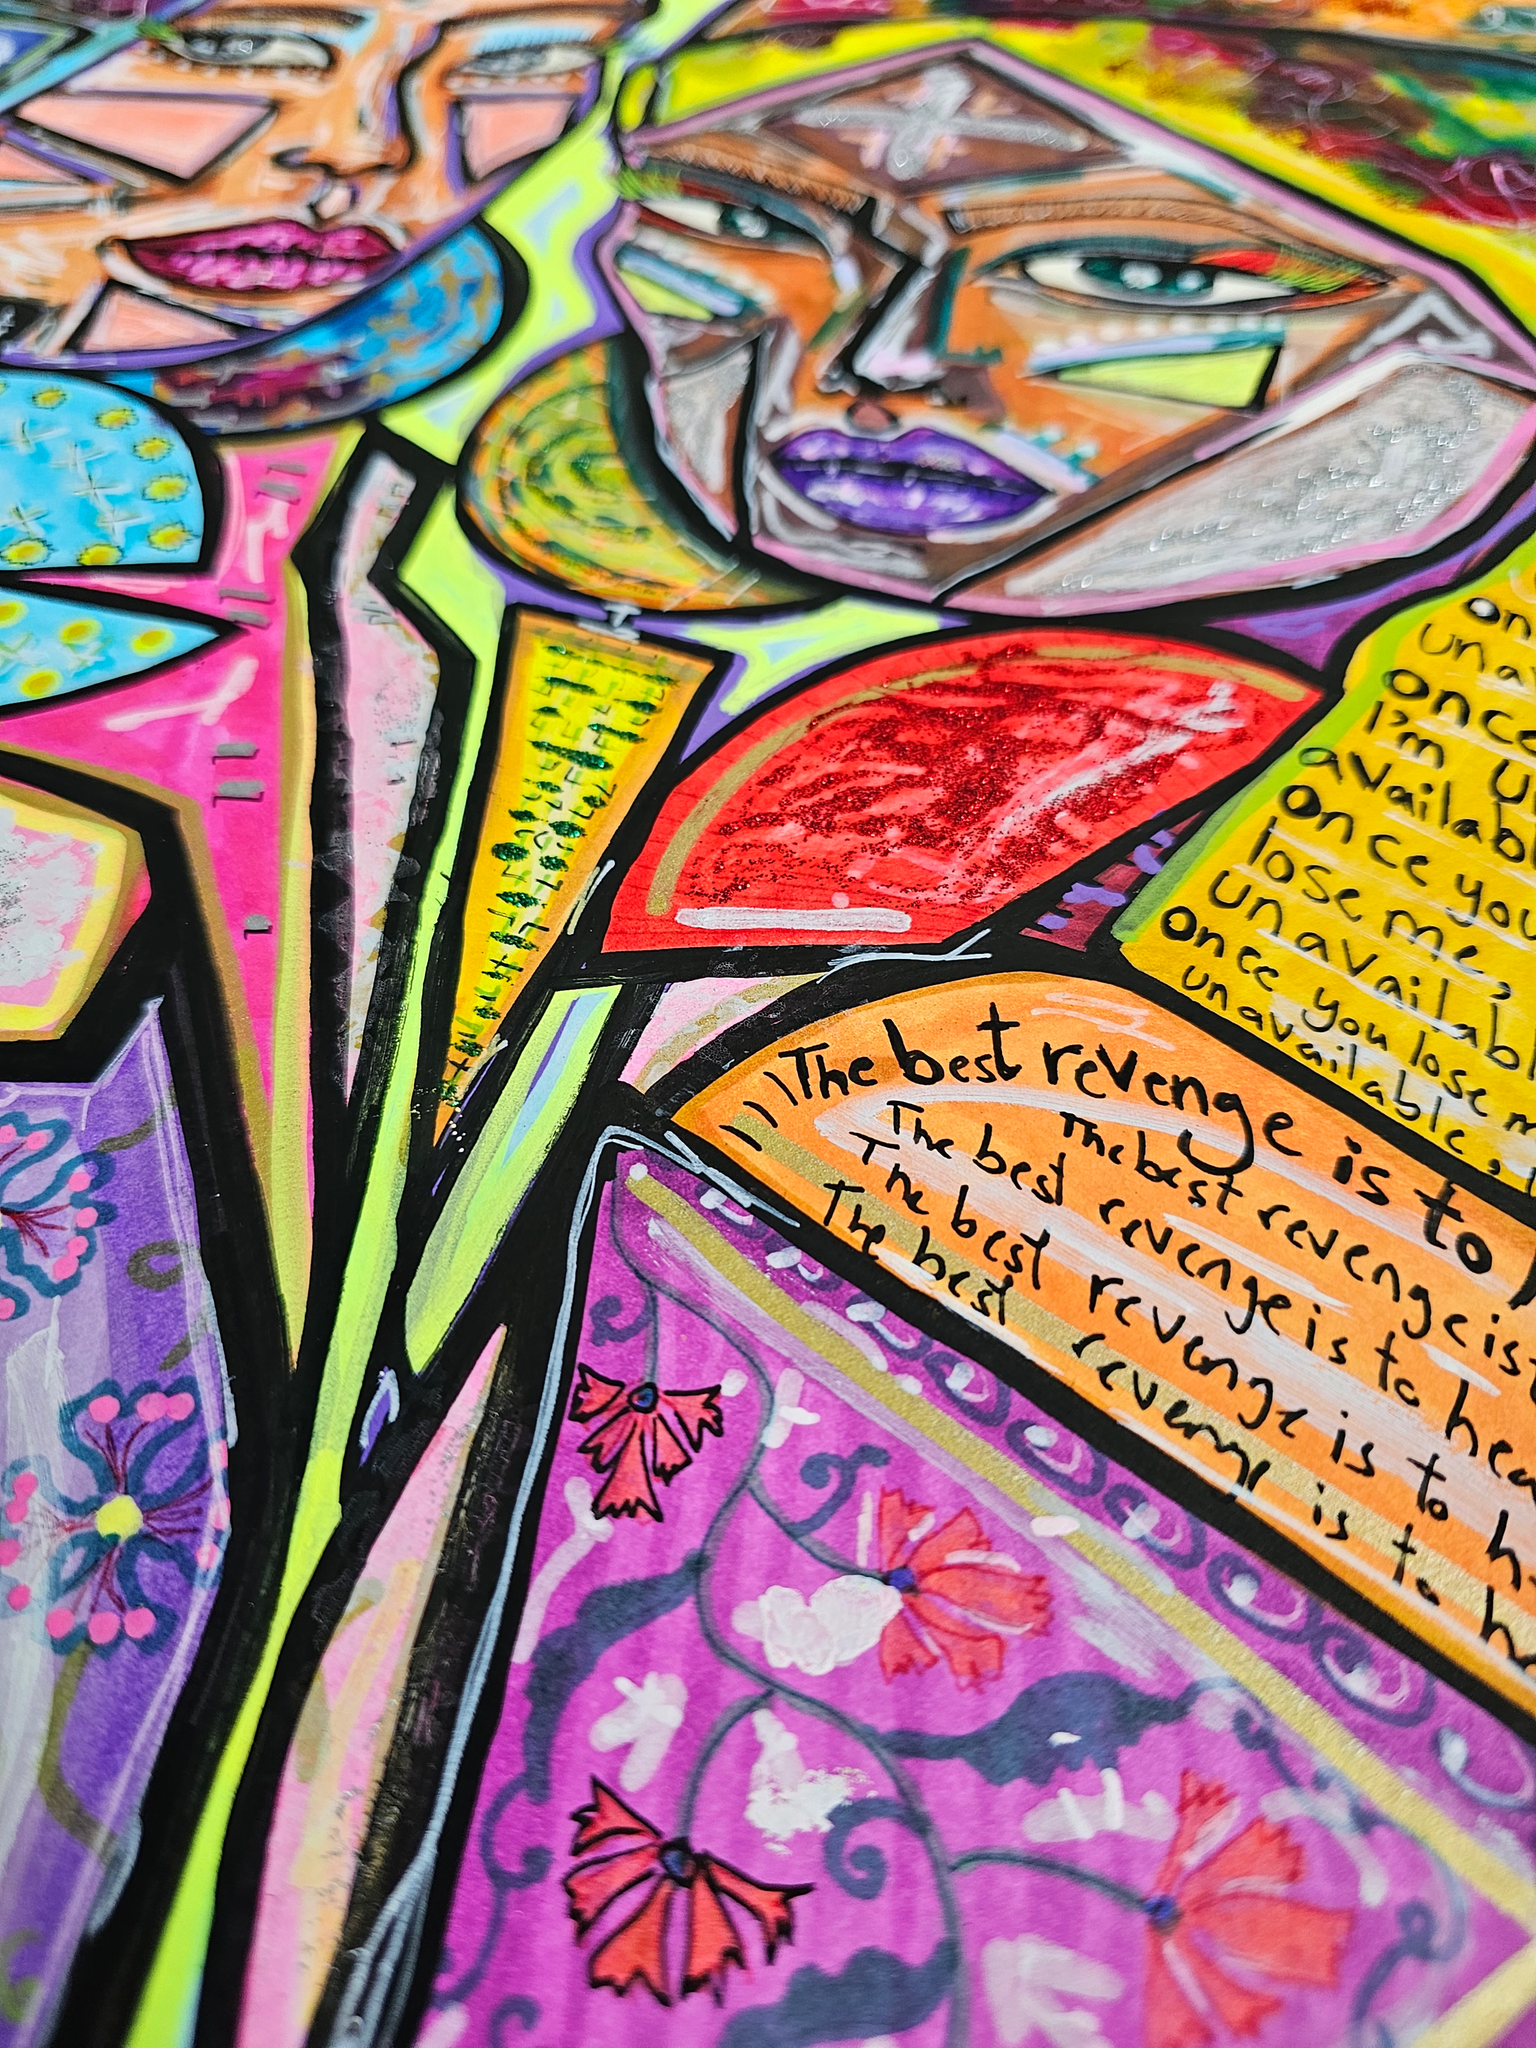 on
una
once
I'm u
availabl
once you
lose me,
unavailabl
once you lose m
unavailable,
The best revenge is to
The best revenge is
The best revenge is to hea
The best revenge is to h
The best revenge is to h